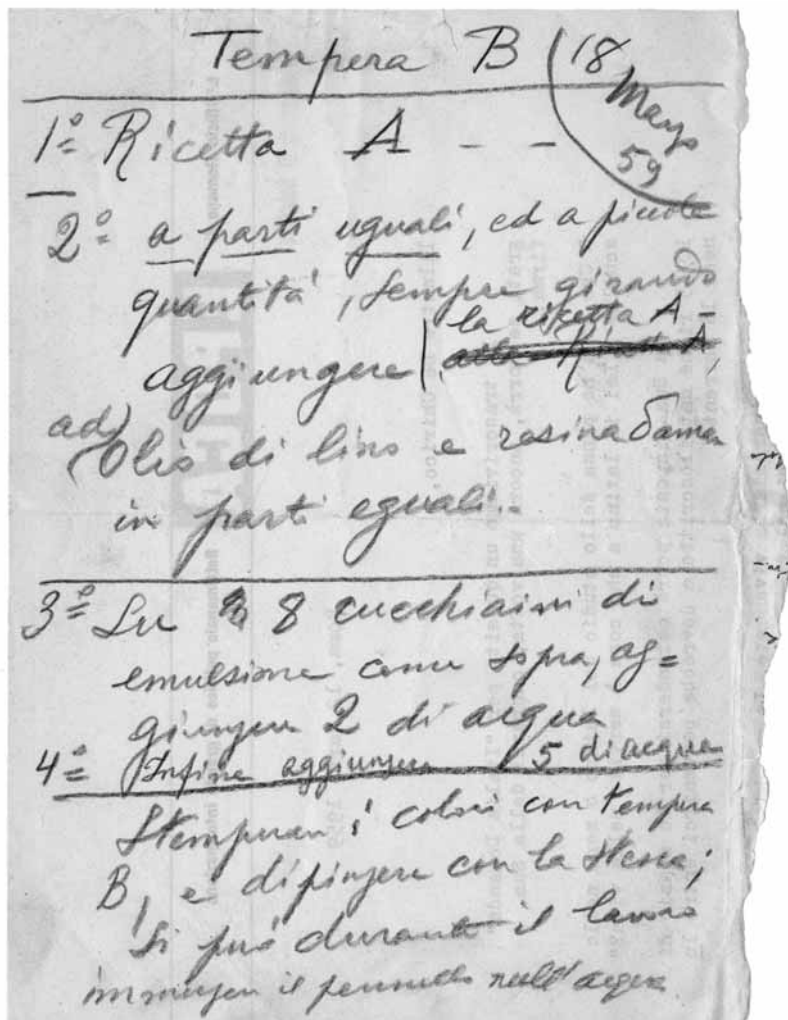 Tempera B (18
Marzo
59
1º Ricetta A - -
2º a parti uguali, ed a piccole
quantità, sempre girando
la ricetta A -
aggiungere
ad
Olio di lino e resina Damar
in parti eguali.
3º Su 8 cucchiaini di
emulsione come sopra, ag=
giungere 2 di acqua
4º Infine aggiungere 5 di acqua
Stemperare i colori con tempera
B, e dipingere con la stessa;
si può durante il lavoro
immergere il pennello nell'acqua